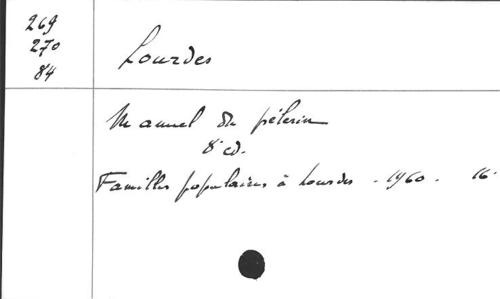 269
270
84
Lourdes
Manuel du pélerin
8e ed.
Familles populaires à Lourdes - 1960 - 16°